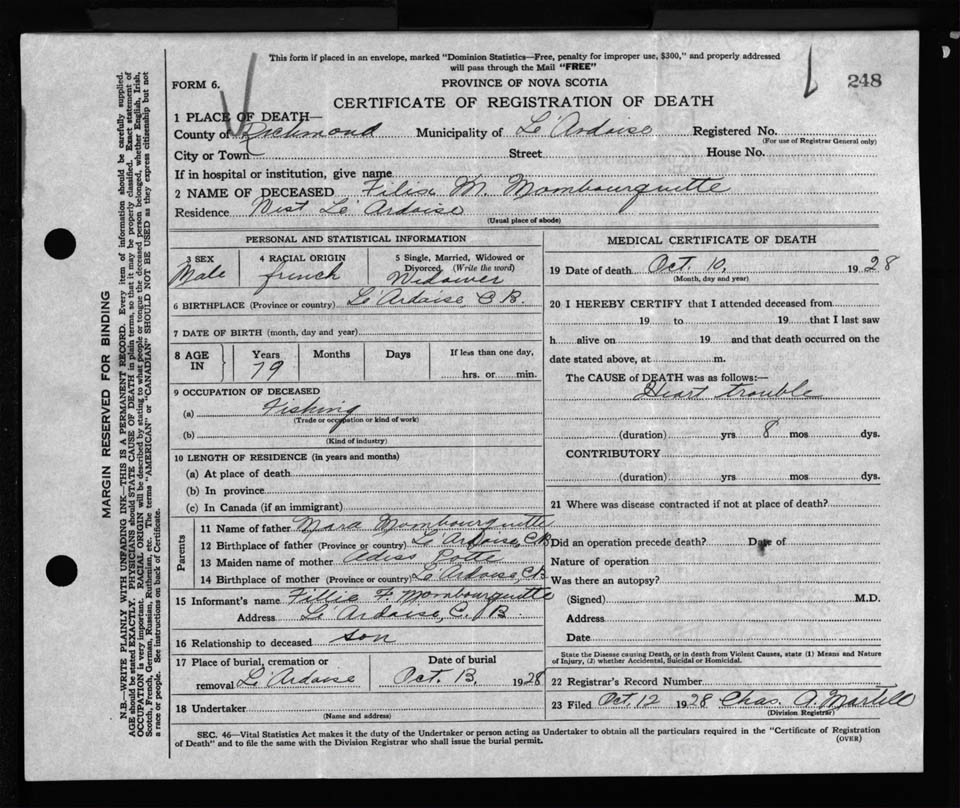 This form if placed in an envelope, marked "Dominion Statistics—Free, penalty for improper use, $300," and properly addressed
will pass through the Mail "FREE"
248
FORM 6.
PROVINCE OF NOVA SCOTIA
CERTIFICATE OF REGISTRATION OF DEATH
1 PLACE OF DEATH—
County of Richmond Municipality of Le'Ardoise Registered No.
(For use of Registrar General only)
City or Town Street House No.
If in hospital or institution, give name
2 NAME OF DECEASED Filix M. Mombourquitte
Residence West Le'Ardoise
(Usual place of abode)
PERSONAL AND STATISTICAL INFORMATION
3 SEX 4 RACIAL ORIGIN 5 Single, Married, Widowed or
Divorced (Write the word)
Male french Widower
6 BIRTHPLACE (Province or country) Le'Ardoise, C.B.
7 DATE OF BIRTH (month, day and year)
8 AGE IN Years Months Days If less than one day,
79 hrs. or min.
9 OCCUPATION OF DECEASED
(a) Fishing
(Trade or occupation or kind of work)
(b)
(Kind of industry)
10 LENGTH OF RESIDENCE (in years and months)
(a) At place of death
(b) In province
(c) In Canada (if an immigrant)
Parents
11 Name of father Mara Mombourquitte
12 Birthplace of father (Province or country) Le'Ardoise, C.B
13 Maiden name of mother Potte
14 Birthplace of mother (Province or country) Le'Ardoise, C.B
15 Informant's name Fillie F. Mombourquitte
Address Le'Ardoise, C.B
16 Relationship to deceased son
17 Place of burial, cremation or Date of burial
removal Le'Ardoise Oct. 13, 1928
18 Undertaker
(Name and address)
MEDICAL CERTIFICATE OF DEATH
19 Date of death Oct. 10, 1928
(Month, day and year)
20 I HEREBY CERTIFY that I attended deceased from
19 to 19 that I last saw
h alive on 19 and that death occurred on the
date stated above, at m.
The CAUSE of DEATH was as follows:—
Heart trouble
(duration) yrs 8 mos dys.
CONTRIBUTORY
(duration) yrs mos dys.
21 Where was disease contracted if not at place of death?
Did an operation precede death? Date of
Nature of operation
Was there an autopsy?
(Signed) M.D.
Address
Date
State the Disease causing Death, or in death from Violent Causes, state (1) Means and Nature
of Injury, (2) whether Accidental, Suicidal or Homicidal.
22 Registrar's Record Number
23 Filed Oct. 12 1928 Chas. A. Martell
(Division Registrar)
SEC. 46—Vital Statistics Act makes it the duty of the Undertaker or person acting as Undertaker to obtain all the particulars required in the "Certificate of Registration
of Death" and to file the same with the Division Registrar who shall issue the burial permit.
(OVER)
MARGIN RESERVED FOR BINDING
N.B.—WRITE PLAINLY WITH UNFADING INK—THIS IS A PERMANENT RECORD. Every item of information should be carefully supplied.
AGE should be stated EXACTLY. PHYSICIANS should STATE CAUSE OF DEATH in plain terms, so that it may be properly classified. Exact statement of
OCCUPATION is very important. RACIAL ORIGIN will be described by stating to what people or tongue the deceased person belonged, whether English, Irish,
Scotch, French, German, Russian, Ruthenian, etc. The terms "AMERICAN" or "CANADIAN" SHOULD NOT BE USED as they express citizenship but not
a race or people. See instructions on back of Certificate.